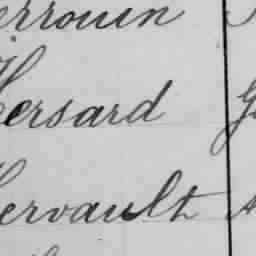 errouin
Hersard
Hervault